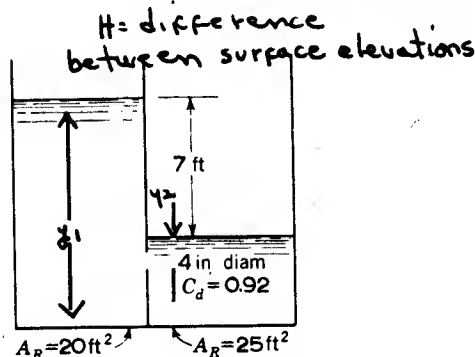 H= difference
between surface elevations
7 ft
y2
y1
4 in diam
C_d = 0.92
A_R=20ft² A_R=25ft²